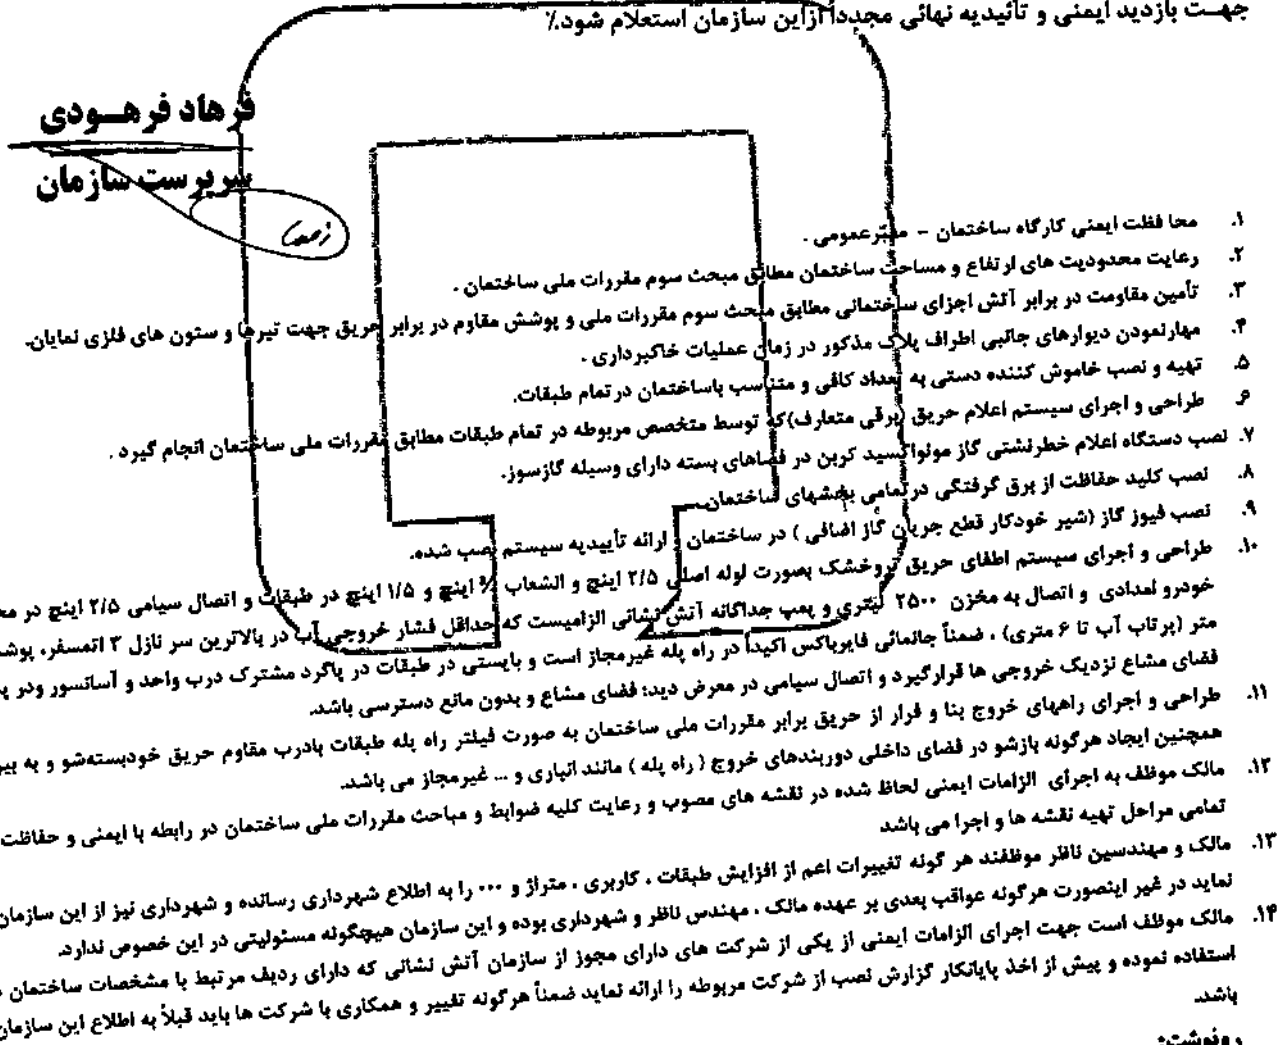 جهت بازدید ایمنی و تائیدیه نهائی مجدداً ازاین سازمان استعلام شود٪
فرهاد فرهودی
سرپرست سازمان
۱. محافظت ایمنی کارگاه ساختمان - معبرعمومی .
۲. رعایت محدودیت های ارتفاع و مساحت ساختمان مطابق مبحث سوم مقررات ملی ساختمان .
۳. تأمین مقاومت در برابر آتش اجزای ساختمانی مطابق مبحث سوم مقررات ملی و پوشش مقاوم در برابر حریق جهت تیرها و ستون های فلزی نمایان.
۴. مهارنمودن دیوارهای جانبی اطراف پلاک مذکور در زمان عملیات خاکبرداری .
۵. تهیه و نصب خاموش کننده دستی به تعداد کافی و متناسب باساختمان درتمام طبقات.
۶. طراحی و اجرای سیستم اعلام حریق (برقی متعارف)که توسط متخصص مربوطه در تمام طبقات مطابق مقررات ملی ساختمان انجام گیرد .
۷. نصب دستگاه اعلام خطرنشتی گاز مونواکسید کربن در فضاهای بسته دارای وسیله گازسوز.
۸. نصب کلید حفاظت از برق گرفتگی درتمامی بخشهای ساختمان
۹. نصب فیوز گاز (شیر خودکار قطع جریان گاز اضافی ) در ساختمان و ارائه تأییدیه سیستم نصب شده.
۱۰. طراحی و اجرای سیستم اطفای حریق تروخشک بصورت لوله اصلی ۲/۵ اینچ و انشعاب اینچ و ۱/۵ اینچ در طبقات و اتصال سیامی ۲/۵ اینچ در
خودرو امدادی و اتصال به مخزن ۲۵۰۰ لیتری و پمپ جداگانه آتش نشانی الزامیست که حداقل فشار خروجی آب در بالاترین سر نازل ۳ اتمسفر،
متر (پرتاب آب تا ۶ متری) . ضمناً جانمائی فایرباکس اکیداً در راه پله غیرمجاز است و بایستی در طبقات در پاگرد مشترک درب واحد و آسانسور ودر
فضای مشاع نزدیک خروجی ها قرارگیرد و اتصال سیامی در معرض دید؛ فضای مشاع و بدون مانع دسترسی باشد.
۱۱. طراحی و اجرای راههای خروج بنا و فرار از حریق برابر مقررات ملی ساختمان به صورت فیلتر راه پله طبقات بادرب مقاوم حریق خودبسته‌شو و به
همچنین ایجاد هرگونه بازشو در فضای داخلی دوربندهای خروج ( راه پله ) مانند انباری و ... غیرمجاز می باشد.
۱۲. مالک موظف به اجرای الزامات ایمنی لحاظ شده در نقشه های مصوب و رعایت کلیه ضوابط و مباحث مقررات ملی ساختمان در رابطه با ایمنی و حفاظت
تمامی مراحل تهیه نقشه ها و اجرا می باشد
۱۳. مالک و مهندسین ناظر موظفند هر گونه تغییرات اعم از افزایش طبقات ، کاربری ، متراژ و ... را به اطلاع شهرداری رسانده و شهرداری نیز از این سازمان
نماید در غیر اینصورت هرگونه عواقب بعدی بر عهده مالک ، مهندس ناظر و شهرداری بوده و این سازمان هیچگونه مسئولیتی در این خصوص ندارد.
۱۴. مالک موظف است جهت اجرای الزامات ایمنی از یکی از شرکت های دارای مجوز از سازمان آتش نشانی که دارای ردیف مرتبط با مشخصات ساختمان
استفاده نموده و پیش از اخذ پایانکار گزارش نصب از شرکت مربوطه را ارائه نماید ضمناً هرگونه تغییر و همکاری با شرکت ها باید قبلاً به اطلاع این سازمان
باشد.
رونوشت: